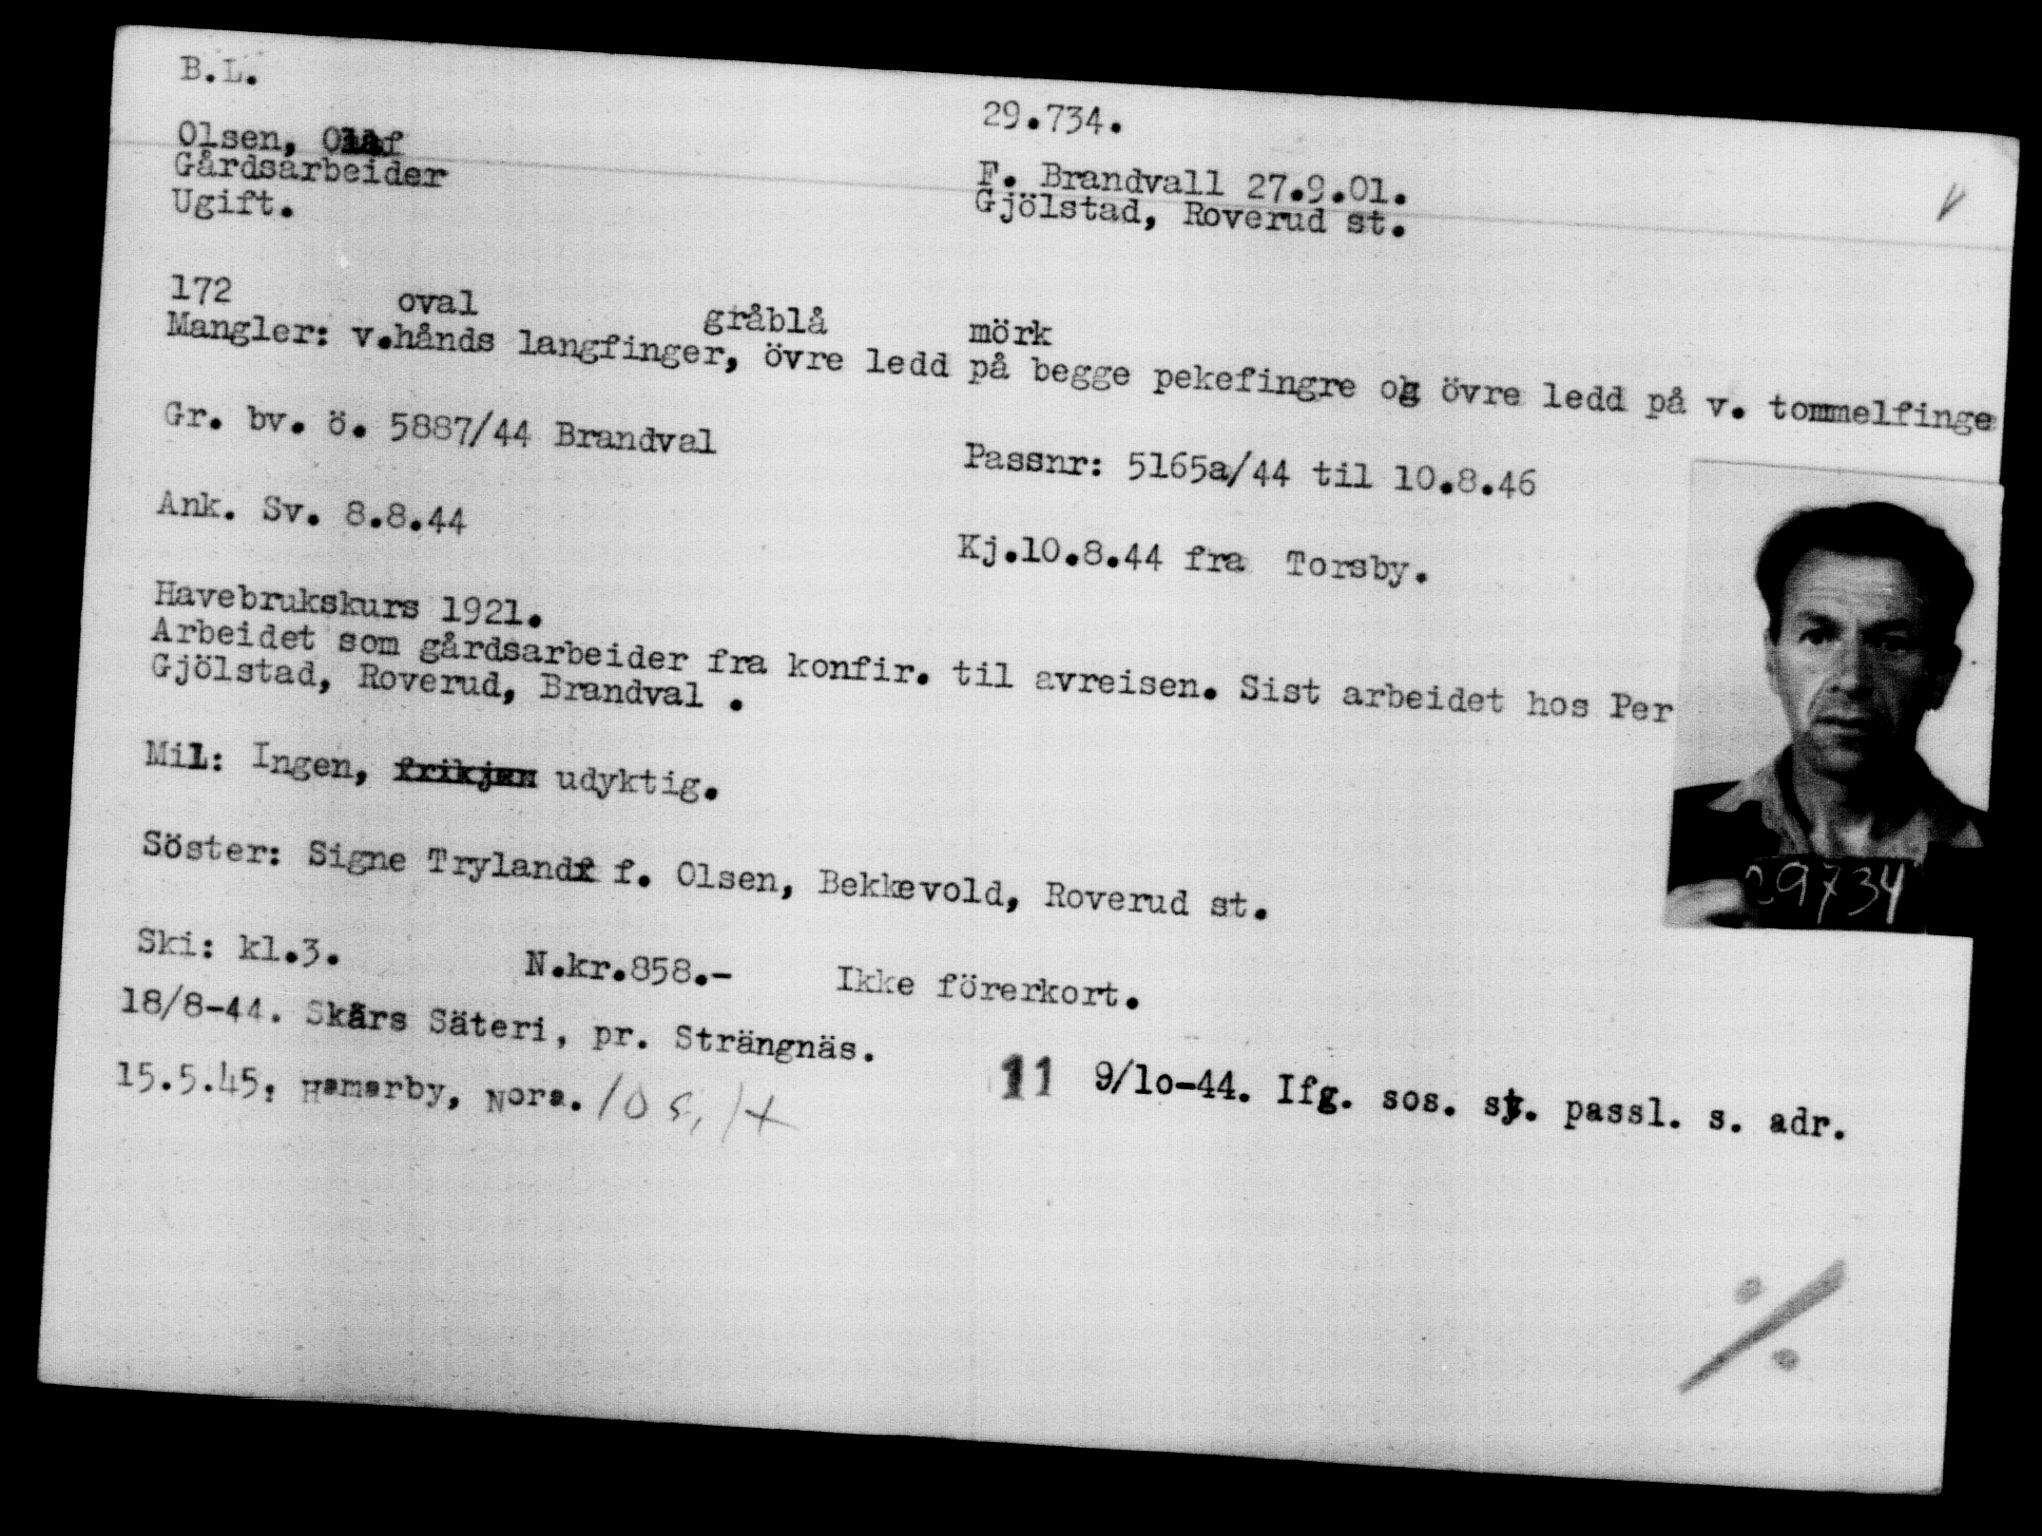 B.L.
29.734.
Olsen, Olaf
Gårdsarbeider
Ugift.
F. Brandvall 27.9.01.
Gjölstad, Roverud st.
172 oval gråblå mörk
Mangler: v.hånds langfinger, övre ledd på begge pekefingre og övre ledd på v. tommelfinge
Gr. bv. ö. 5887/44 Brandval
Passnr: 5165a/44 til 10.8.46
Ank. Sv. 8.8.44
Kj.10.8.44 fra Torsby.
Havebrukskurs 1921.
Arbeidet som gårdsarbeider fra konfir. til avreisen. Sist arbeidet hos Per
Gjölstad, Roverud, Brandval .
Mil: Ingen, udyktig.
Söster: Signe Tryland f. Olsen, Bekkevold, Roverud st.
Ski: kl.3. N.kr.858.- Ikke förerkort.
18/8-44. Skärs Säteri, pr. Strängnäs.
11 9/1o-44. Ifg. sos. st. passl. s. adr.
15.5.45, Hamarby, Nora.
29734